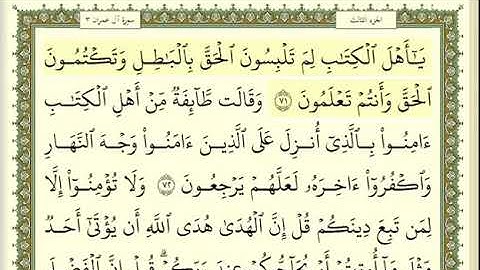 سورة آل عمران ٣ الجزء الثالث
يَـٰٓأَهْلَ ٱلْكِتَـٰبِ لِمَ تَلْبِسُونَ ٱلْحَقَّ بِٱلْبَـٰطِلِ وَتَكْتُمُونَ
ٱلْحَقَّ وَأَنتُمْ تَعْلَمُونَ ٧١ وَقَالَت طَّآئِفَةٌ مِّنْ أَهْلِ ٱلْكِتَـٰبِ
ءَامِنُوا۟ بِٱلَّذِىٓ أُنزِلَ عَلَى ٱلَّذِينَ ءَامَنُوا۟ وَجْهَ ٱلنَّهَارِ
وَٱكْفُرُوٓا۟ ءَاخِرَهُۥ لَعَلَّهُمْ يَرْجِعُونَ ٧٢ وَلَا تُؤْمِنُوٓا۟ إِلَّا
لِمَن تَبِعَ دِينَكُمْ قُلْ إِنَّ ٱلْهُدَىٰ هُدَى ٱللَّهِ أَن يُؤْتَىٰٓ أَحَدٌ
مِّثْلَ مَآ أُوتِيتُمْ أَوْ يُحَآجُّوكُمْ عِندَ رَبِّكُمْ ۗ قُلْ إِنَّ ٱلْفَضْلَ